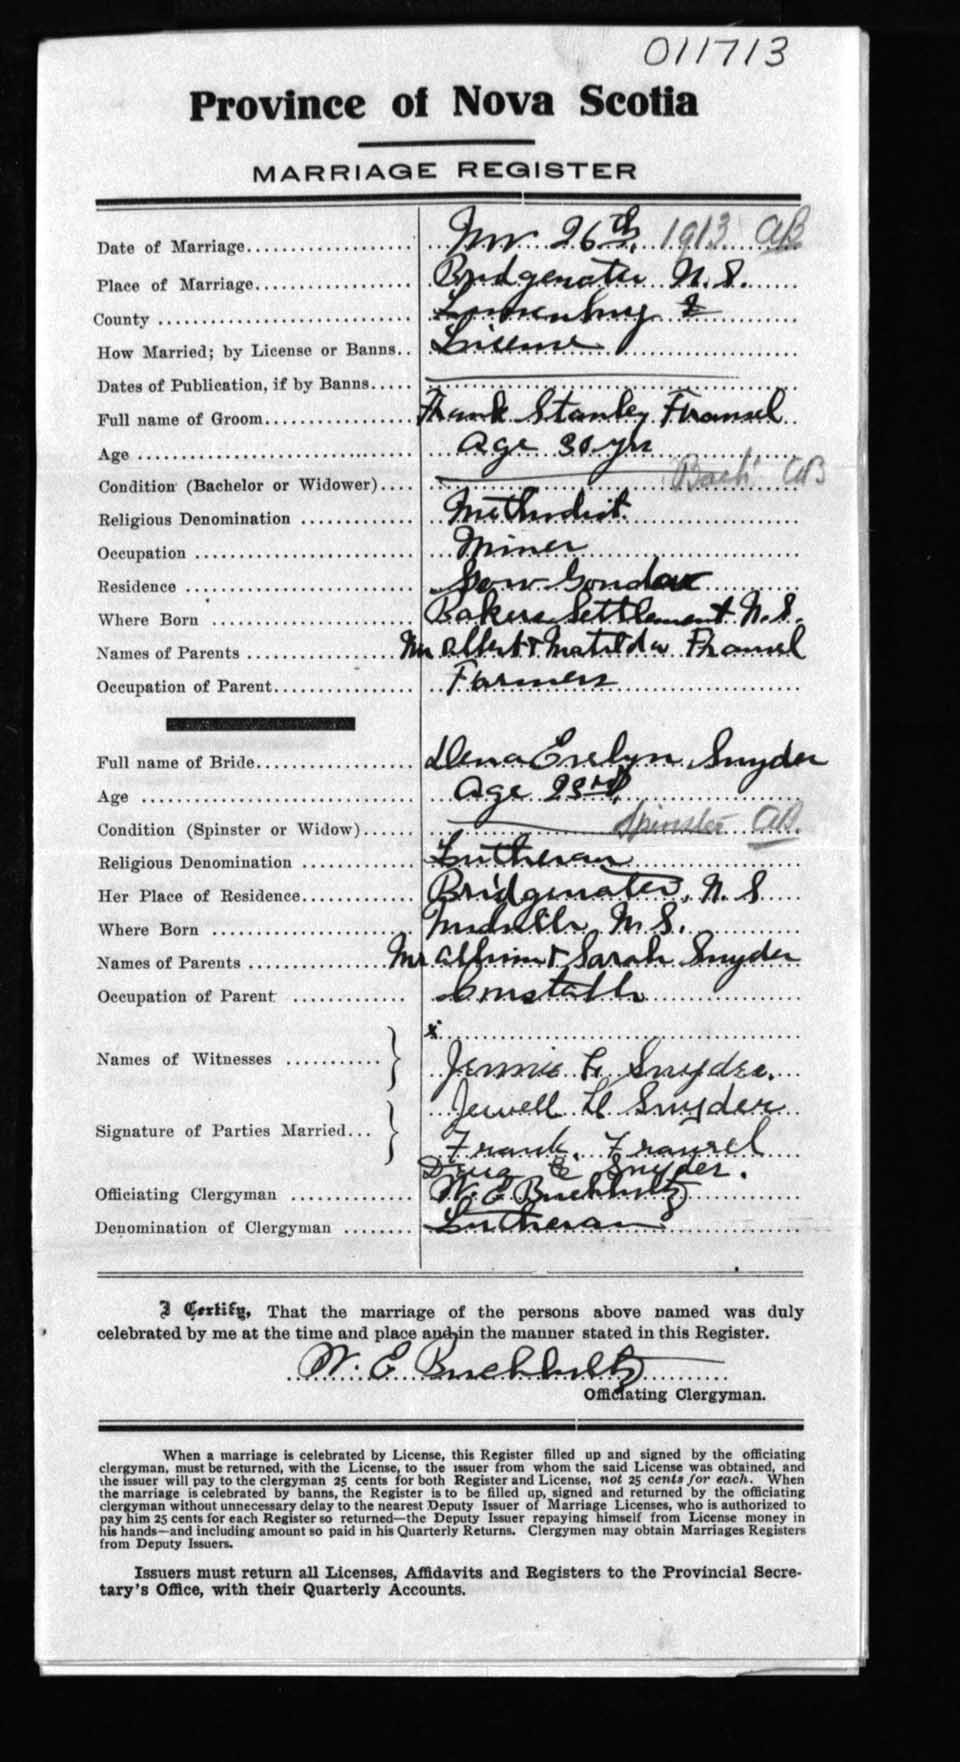 011713
Province of Nova Scotia
MARRIAGE REGISTER
Date of Marriage Nov 26th, 1913 AB
Place of Marriage Bridgewater N.S.
County Lunenburg
How Married; by License or Banns License
Dates of Publication, if by Banns
Full name of Groom Frank Stanley
Age Age 30 yrs
Condition (Bachelor or Widower) Bach AB
Religious Denomination Methodist
Occupation Miner
Residence
Where Born Bakers Settlement N.S.
Names of Parents Mr Albert & Matilda
Occupation of Parent Farmer
Full name of Bride Evelyn Snyder
Age Age 23rd
Condition (Spinster or Widow) Spinster AB.
Religious Denomination Lutheran
Her Place of Residence Bridgewater, N.S
Where Born N.S.
Names of Parents Mr & Sarah Snyder
Occupation of Parent Constable
x
Names of Witnesses Jennie Snyder.
Jewell H Snyder
Signature of Parties Married Frank.
E Snyder.
Officiating Clergyman W. E Buchholtz
Denomination of Clergyman Lutheran
I Certify, That the marriage of the persons above named was duly
celebrated by me at the time and place and in the manner stated in this Register.
W. E Buchholtz
Officiating Clergyman.
When a marriage is celebrated by License, this Register filled up and signed by the officiating
clergyman, must be returned, with the License, to the issuer from whom the said License was obtained, and
the issuer will pay to the clergyman 25 cents for both Register and License, not 25 cents for each. When
the marriage is celebrated by banns, the Register is to be filled up, signed and returned by the officiating
clergyman without unnecessary delay to the nearest Deputy Issuer of Marriage Licenses, who is authorized to
pay him 25 cents for each Register so returned—the Deputy Issuer repaying himself from License money in
his hands—and including amount so paid in his Quarterly Returns. Clergymen may obtain Marriages Registers
from Deputy Issuers.
Issuers must return all Licenses, Affidavits and Registers to the Provincial Secre-
tary's Office, with their Quarterly Accounts.